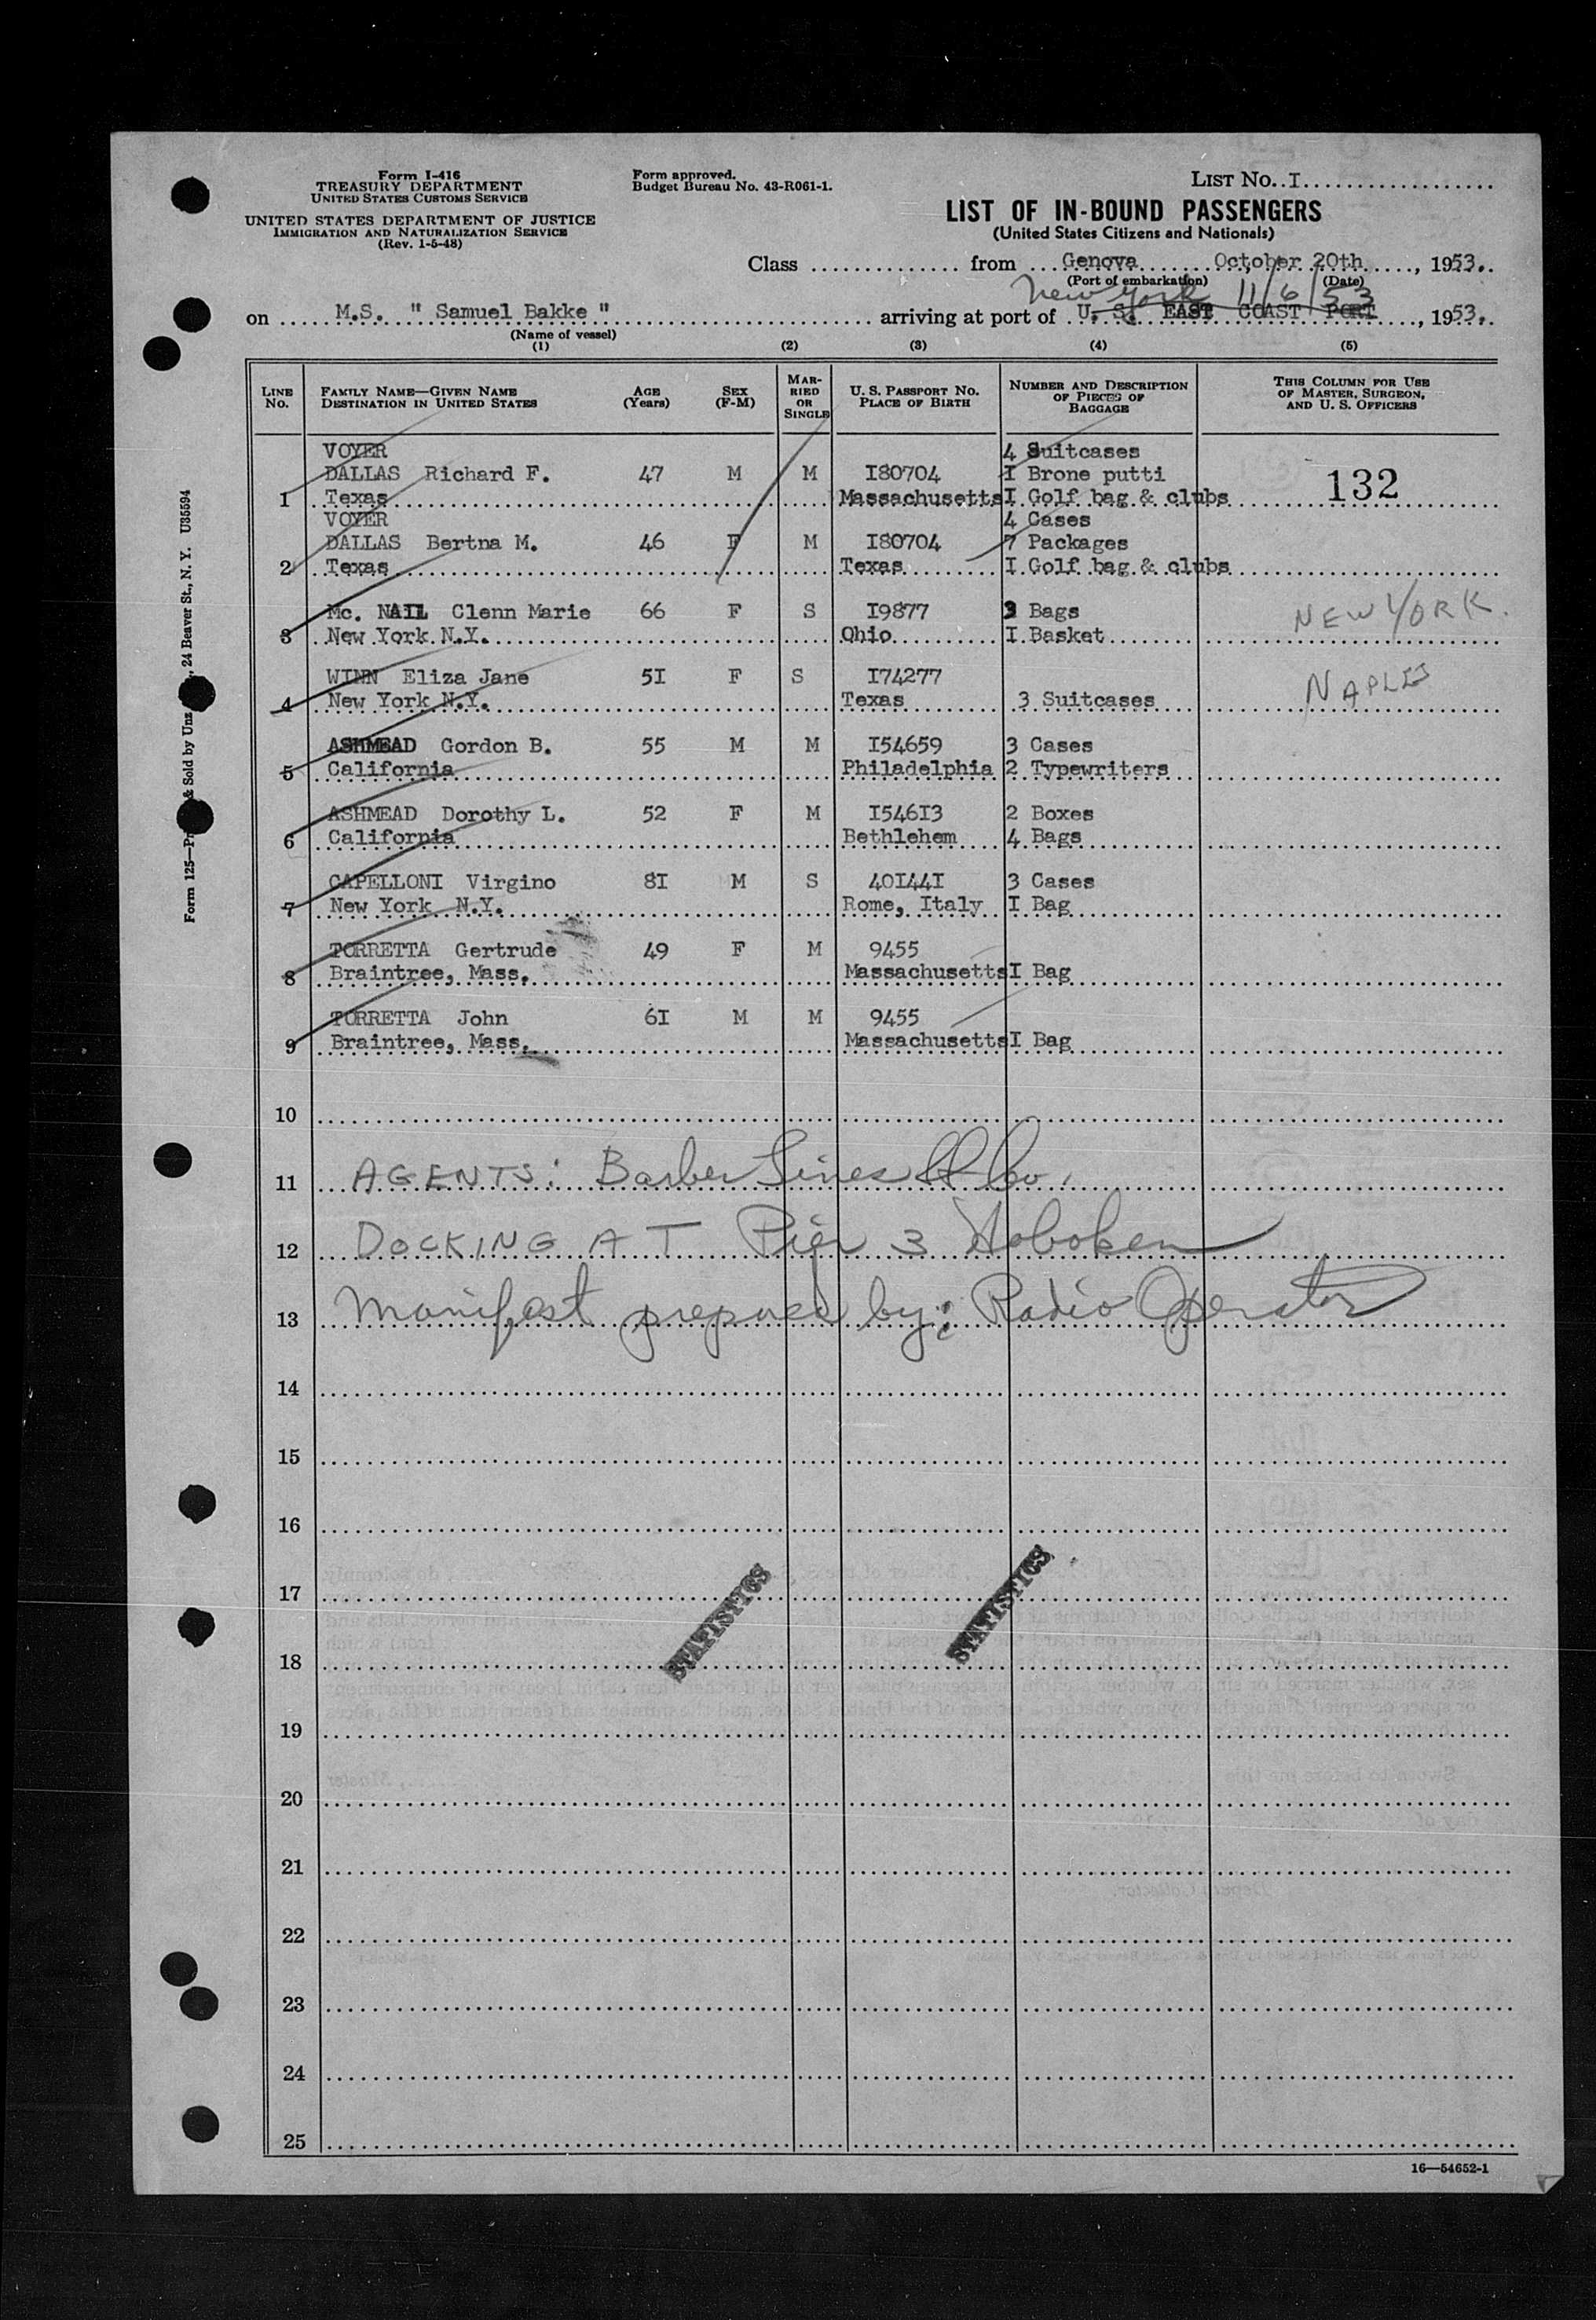 Form I-416
TREASURY DEPARTMENT
UNITED STATES CUSTOMS SERVICE
UNITED STATES DEPARTMENT OF JUSTICE
IMMIGRATION AND NATURALIZATION SERVICE
(Rev. 1-5-48)
Form approved.
Budget Bureau No. 43-R061-1.
LIST No. I
LIST OF IN-BOUND PASSENGERS
(United States Citizens and Nationals)
Class ............... from Genova October 20th, 1953.
(Port of embarkation) (Date)
New York 11/6/53
on M.S. " Samuel Bakke " arriving at port of U. S. EAST COAST PORT, 1953.
(Name of vessel)
(1) (2) (3) (4) (5)
LINE No. FAMILY NAME—GIVEN NAME DESTINATION IN UNITED STATES AGE (Years) SEX (F-M) MARRIED OR SINGLE U. S. PASSPORT No. PLACE OF BIRTH NUMBER AND DESCRIPTION OF PIECES OF BAGGAGE THIS COLUMN FOR USE OF MASTER, SURGEON, AND U. S. OFFICERS
VOYER 4 Suitcases
DALLAS Richard F. 47 M M I80704 I Brone putti 132
1 Texas Massachusetts I Golf bag & clubs
VOYER 4 Cases
DALLAS Bertna M. 46 F M I80704 7 Packages
2 Texas Texas I Golf bag & clubs
Mc. NAIL Clenn Marie 66 F S I9877 3 Bags NEW YORK.
3 New York N.Y. Ohio I Basket
WINN Eliza Jane 5I F S I74277 NAPLES
4 New York N.Y. Texas 3 Suitcases
ASHMEAD Gordon B. 55 M M I54659 3 Cases
5 California Philadelphia 2 Typewriters
ASHMEAD Dorothy L. 52 F M I546I3 2 Boxes
6 California Bethlehem 4 Bags
CAPELLONI Virgino 8I M S 40I44I 3 Cases
7 New York N.Y. Rome, Italy I Bag
TORRETTA Gertrude 49 F M 9455
8 Braintree, Mass. Massachusetts I Bag
TORRETTA John 6I M M 9455
9 Braintree, Mass. Massachusetts I Bag
10
11 AGENTS: Barber Lines & Co.
12 DOCKING AT Pier 3 Hoboken
13 Manifest prepared by: Radio Operator
14
15
16
17
STATISTICS STATISTICS
18
19
20
21
22
23
24
25
16—54652-1
Form 125— & Sold by Unz , 24 Beaver St., N. Y. U35594